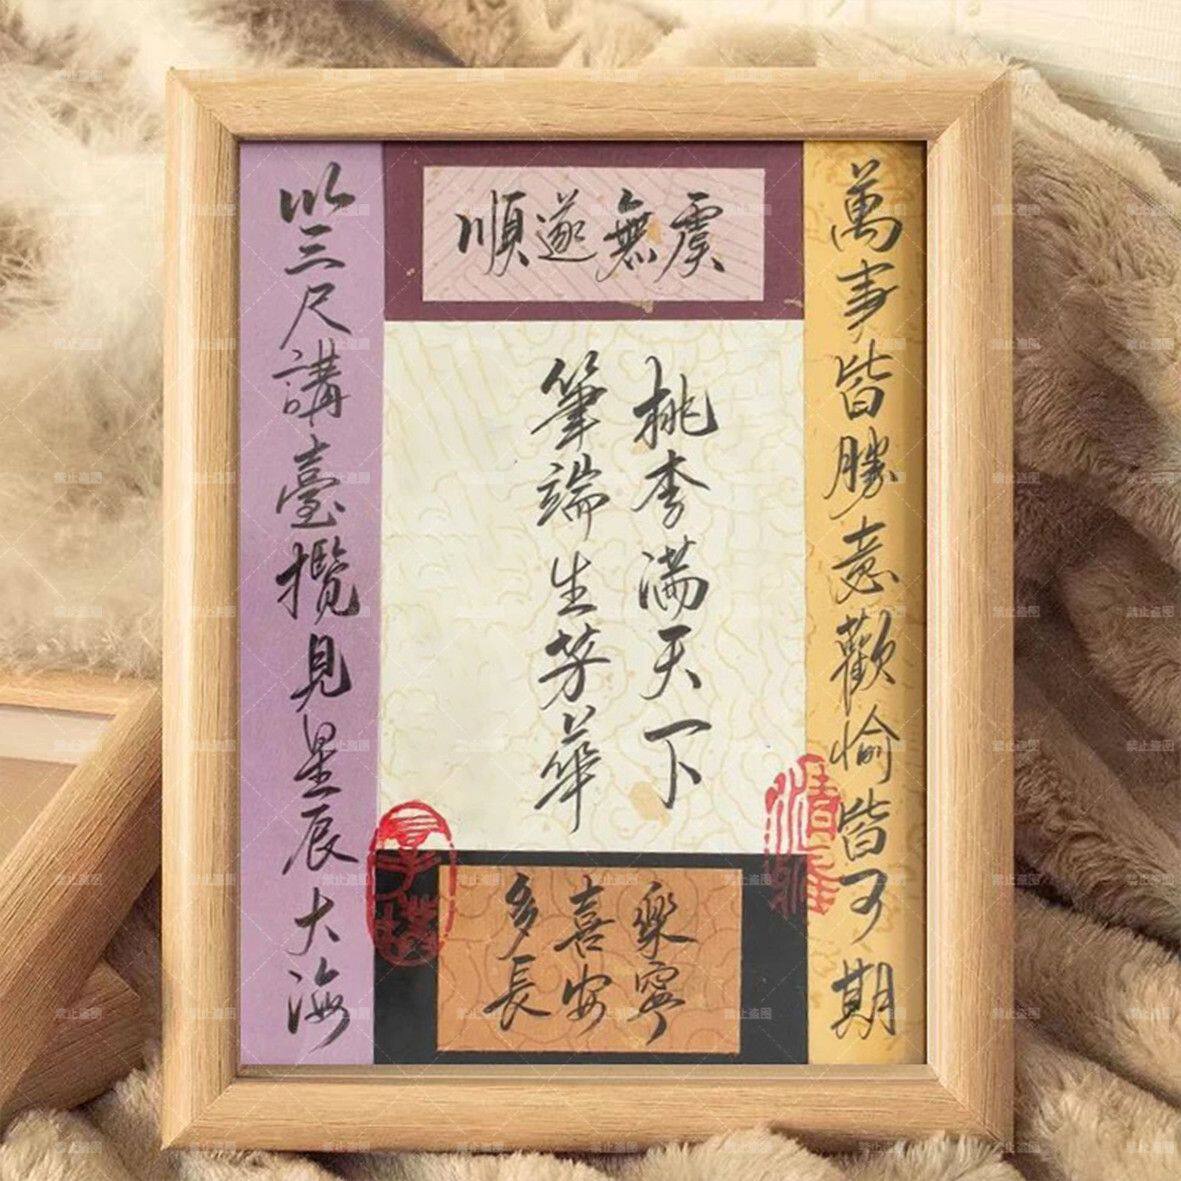 順遂無虞
萬事皆勝意歡愉皆可期
桃李满天下
筆端生芳華
以三尺講臺攬見星辰大海
樂寧
喜安
多長
禁止盗图